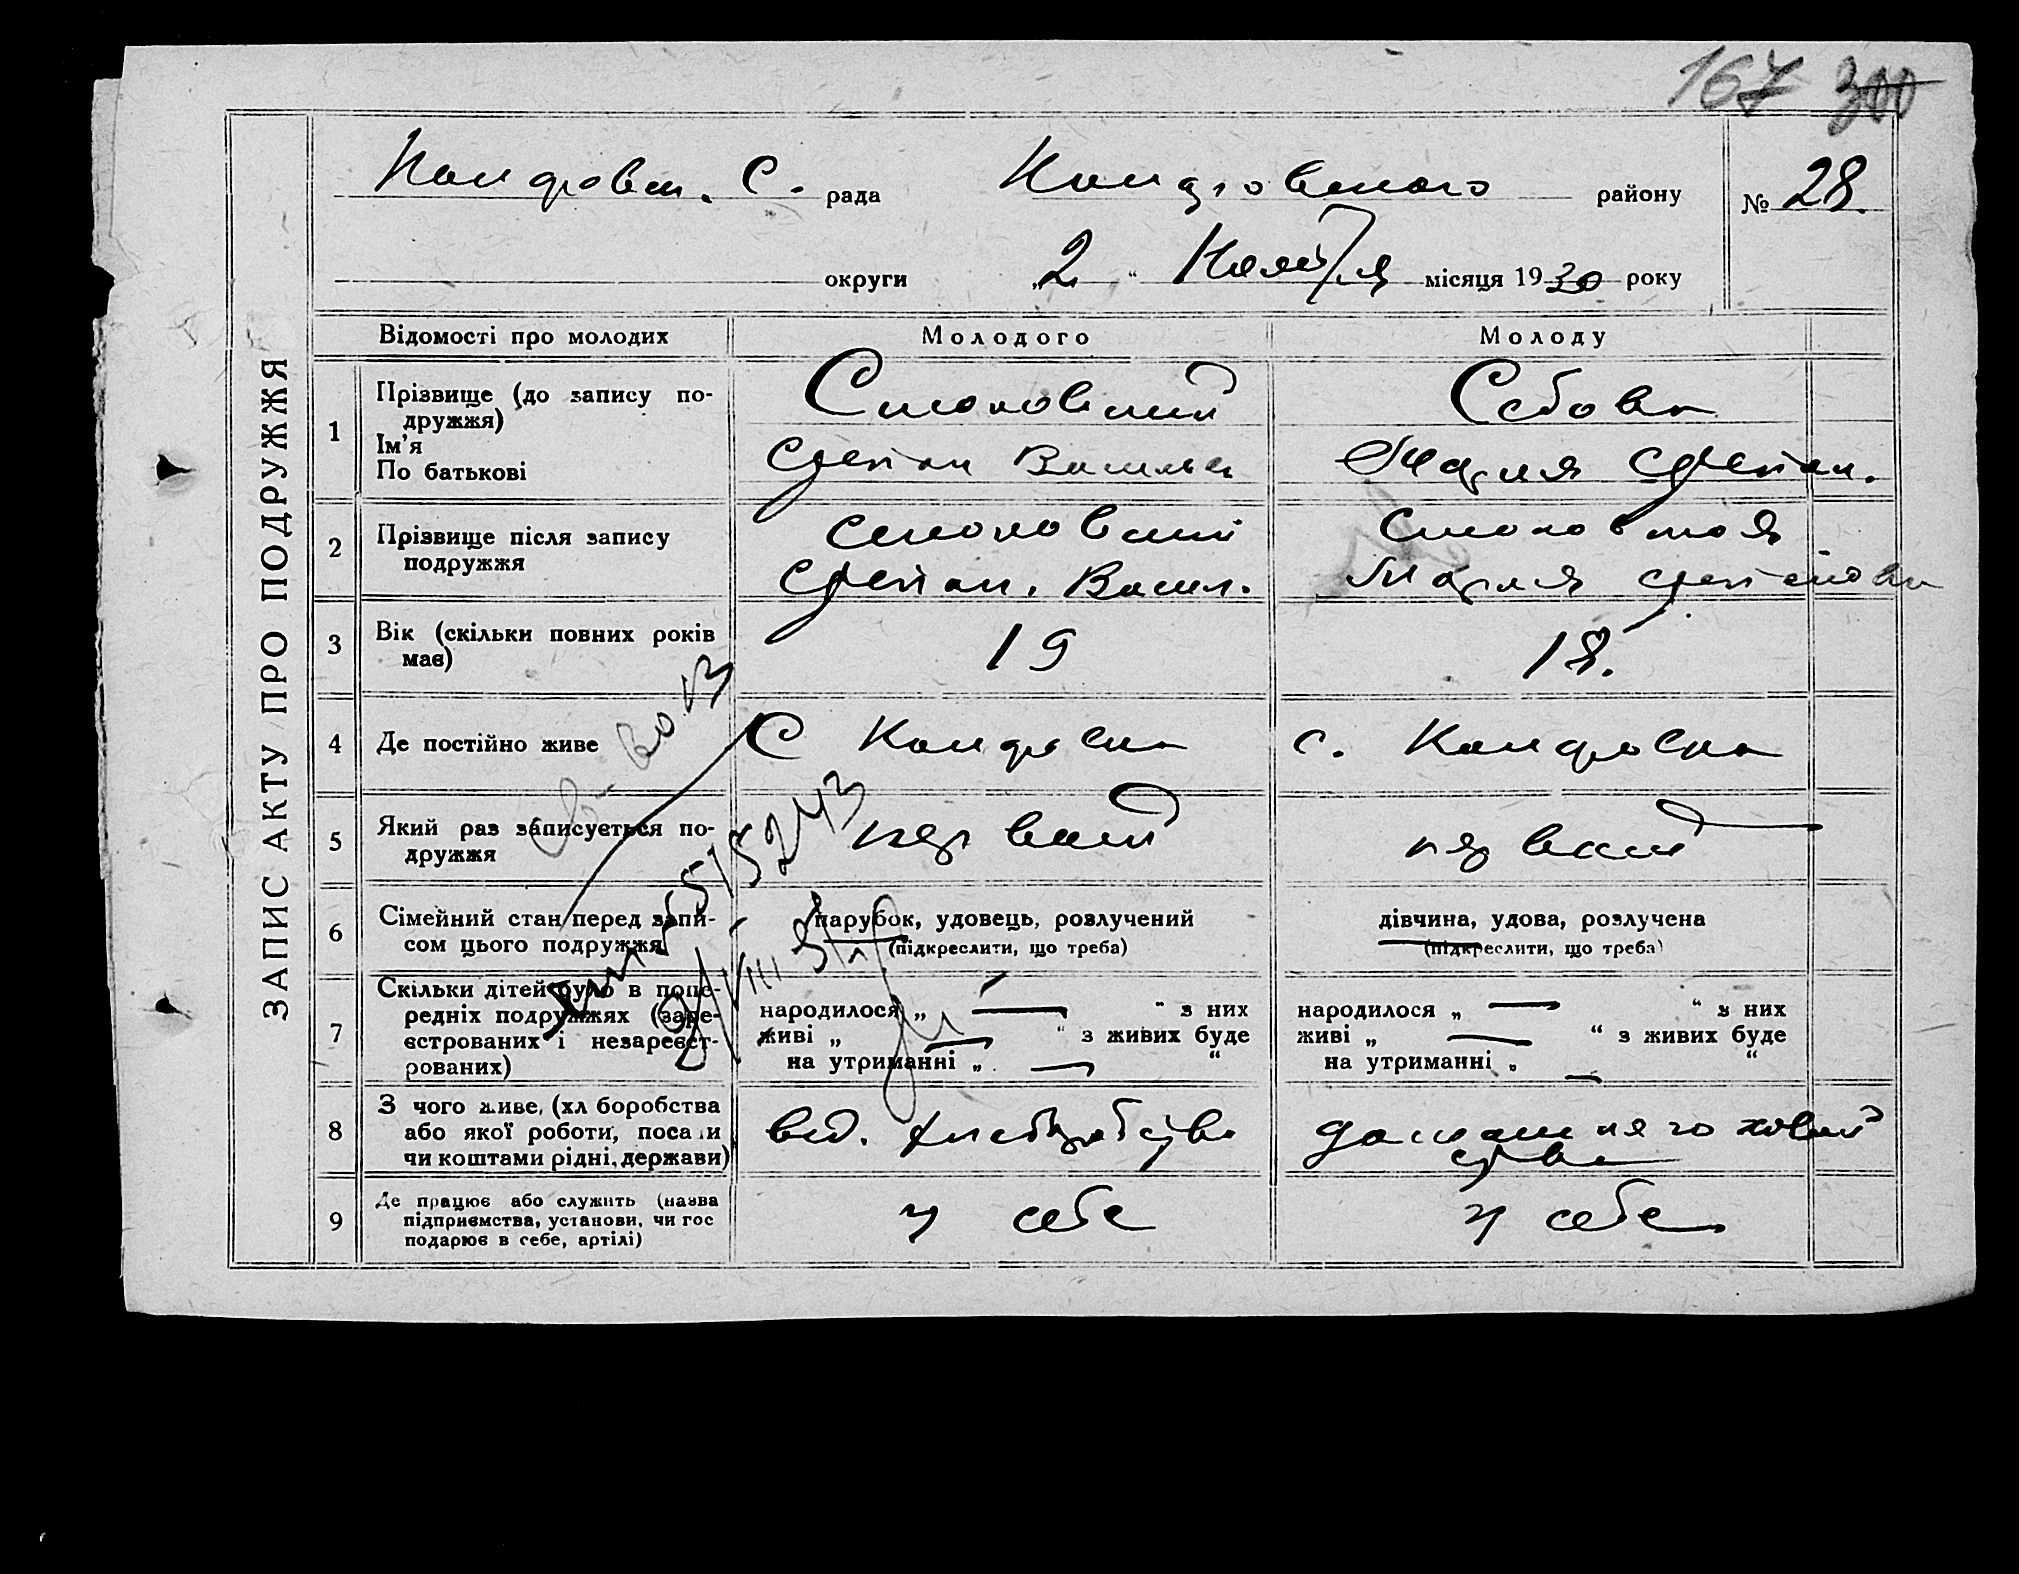 167 300
рада
району
№ 28.
округи
„2 “ Ноября місяця 1930 року
ЗАПИС АКТУ ПРО ПОДРУЖЖЯ
Відомості про молодих
Молодого
Молоду
1
Прізвище (до запису по-
дружжя)
Ім'я
По батькові
Степан
Мария Степан.
2
Прізвище після запису
подружжя
Степан. Васил.
Мария Степанова
3
Вік (скільки повних років
має)
19
18.
4
Де постійно живе
С
с.
5
Який раз записується по-
дружжя
первий
первий
6
Сімейний стан перед запи-
сом цього подружжя
парубок, удовець, розлучений
(підкреслити, що треба)
дівчина, удова, розлучена
(підкреслити, що треба)
7
Скільки дітей було в попе-
редніх подружжях (заре-
єстрованих і незареєст-
рованих)
народилося „ — “ з них
живі „ — “ з живих буде
на утриманні „ — “
народилося „ — “ з них
живі „ — “ з живих буде
на утриманні „ — “
8
З чого живе, (хл боробства
або якої роботи, посади
чи коштами рідні, держави)
від. хлеборобства
домашнего
9
Де працює або служить (назва
підприємства, установи, чи гос
подарює в себе, артілі)
у себе
у себе